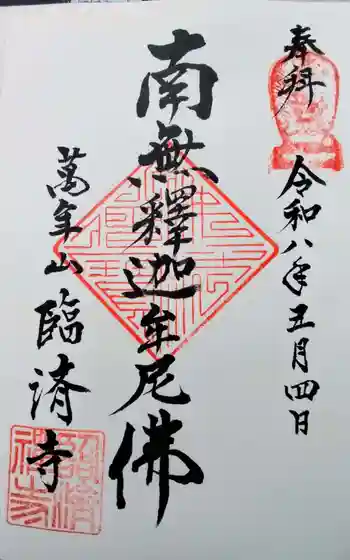 奉拝
令和八年五月四日
南無釋迦牟尼佛
萬年山
臨済寺